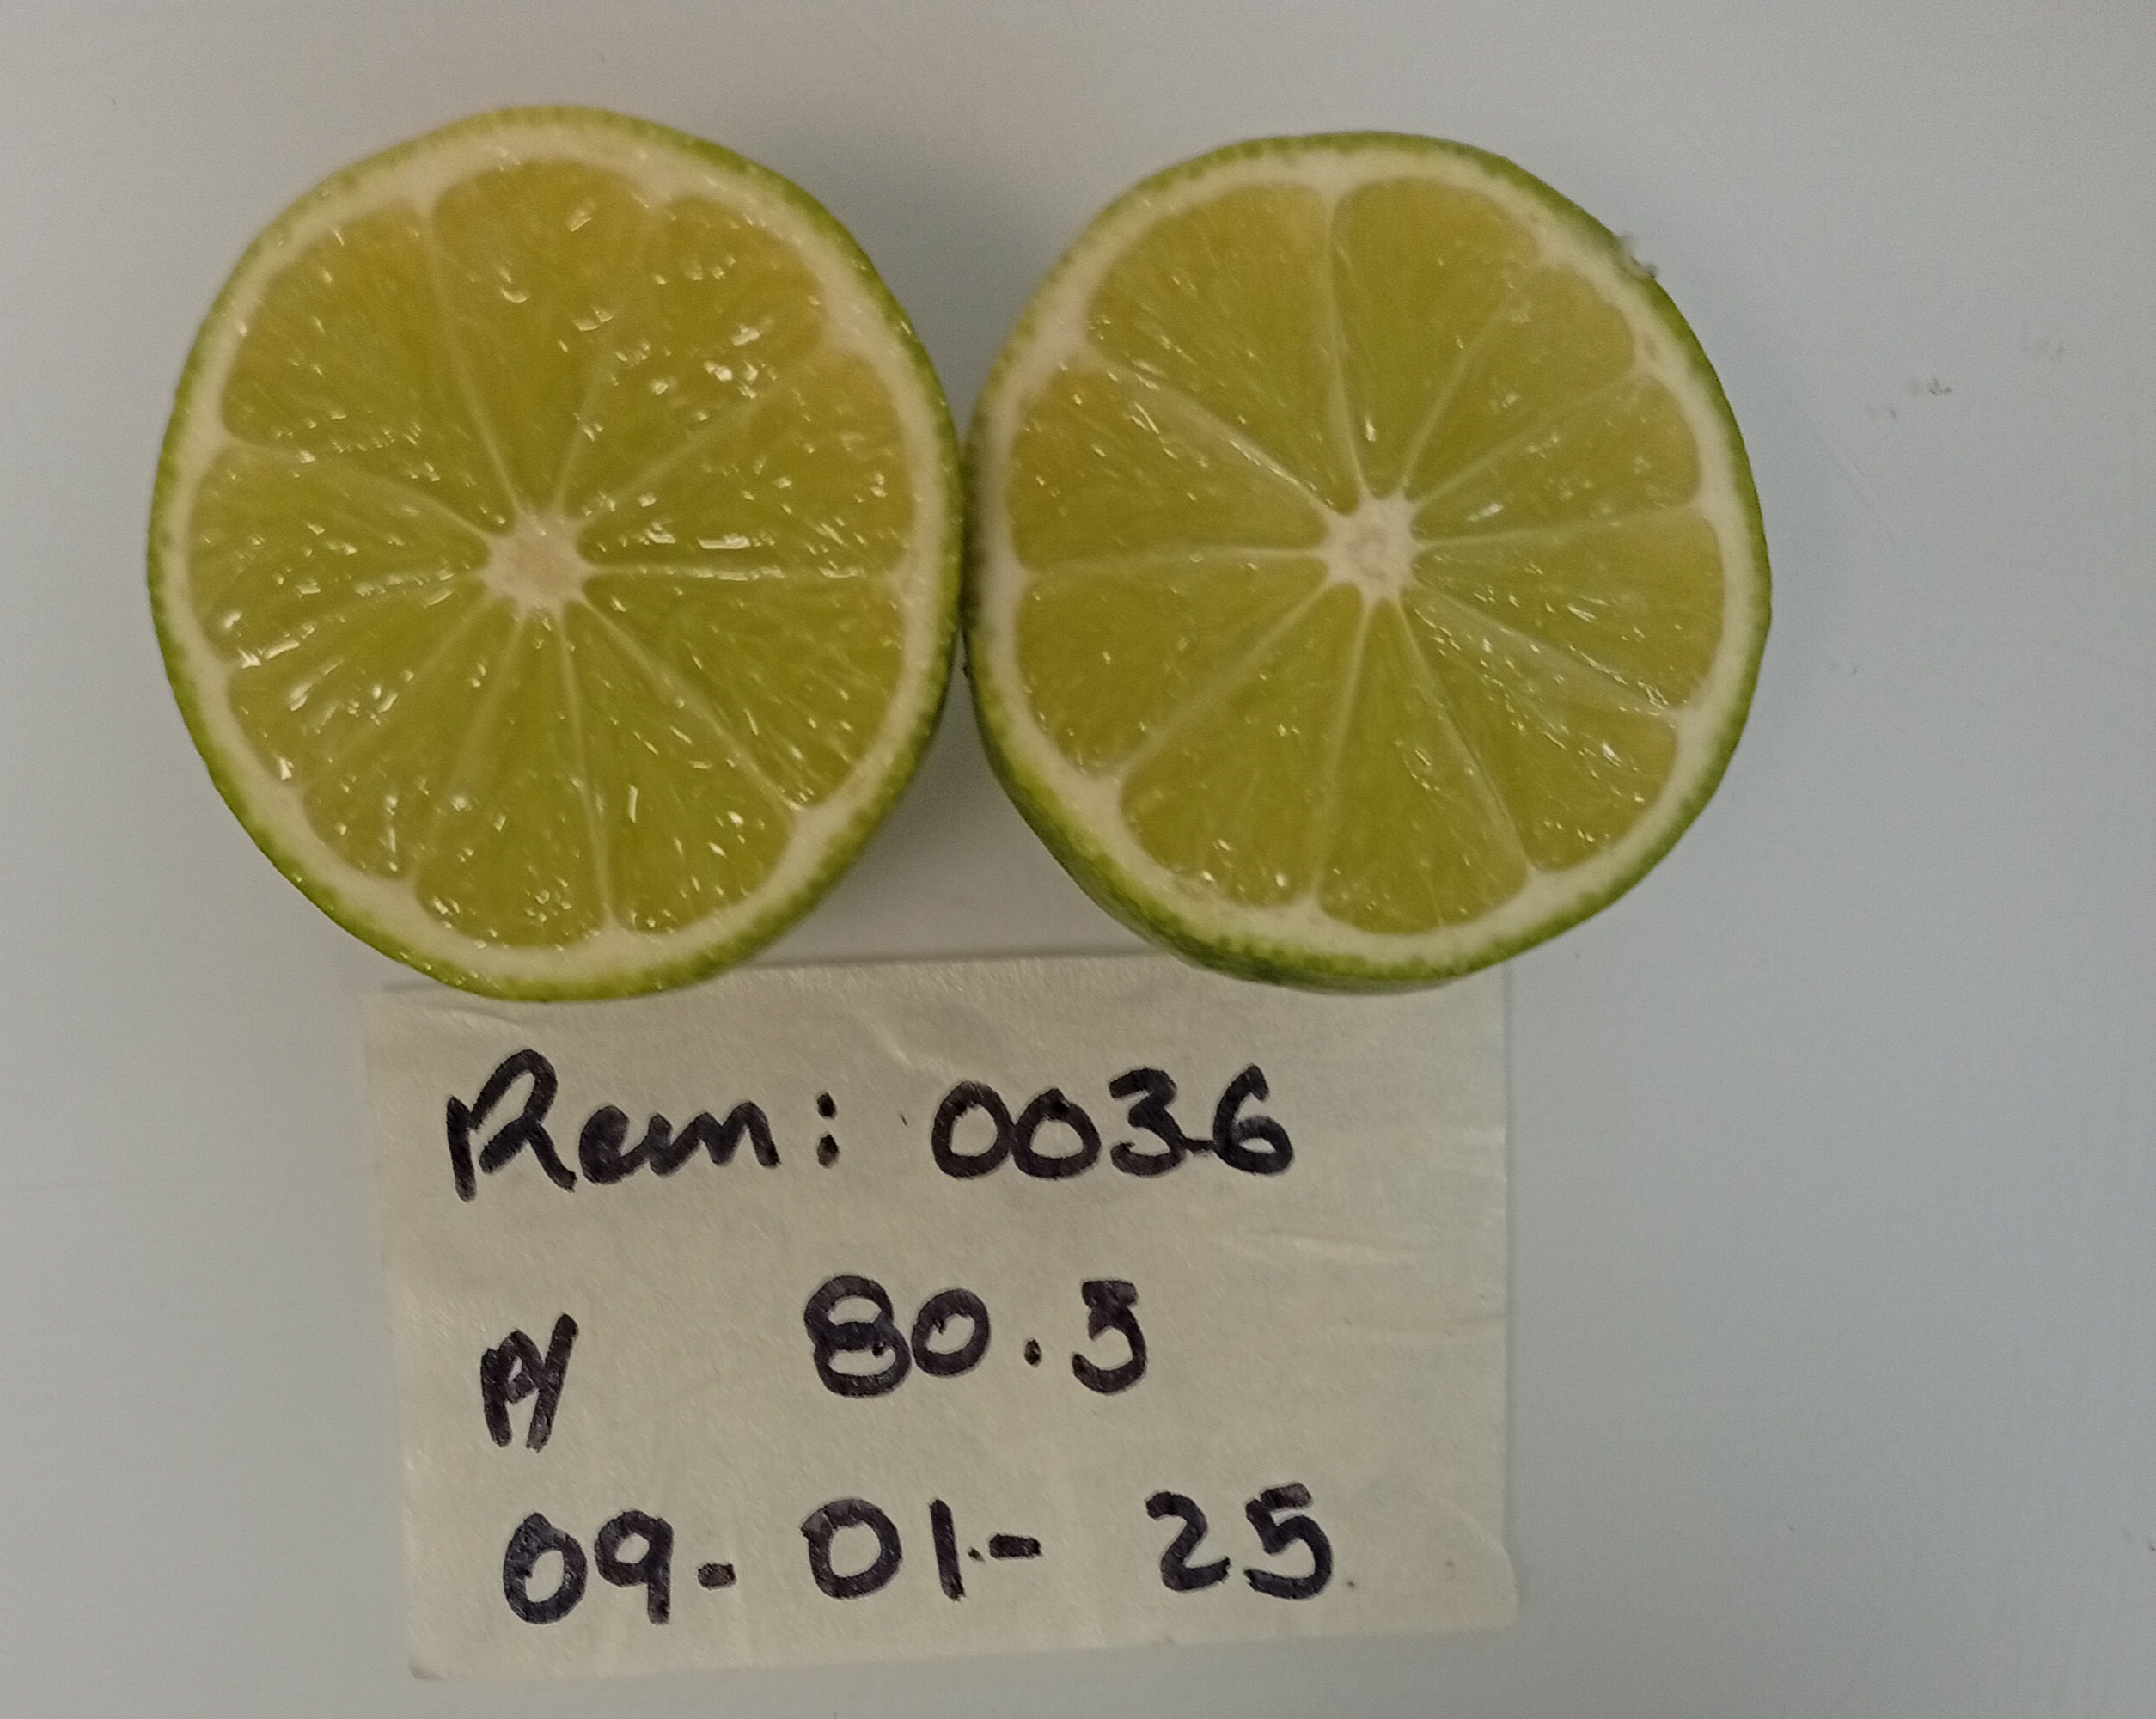 Rem: 0036
P/ 80.5
09-01-25